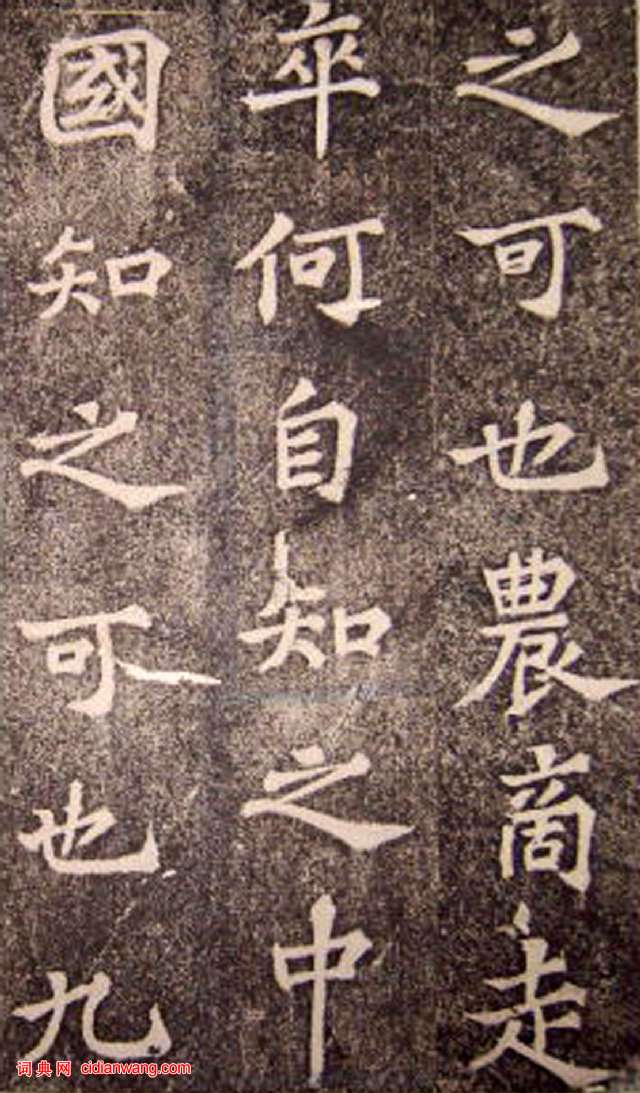 之可也農商走
卒何自知之中
國知之可也九
词典网 cidianwang.com